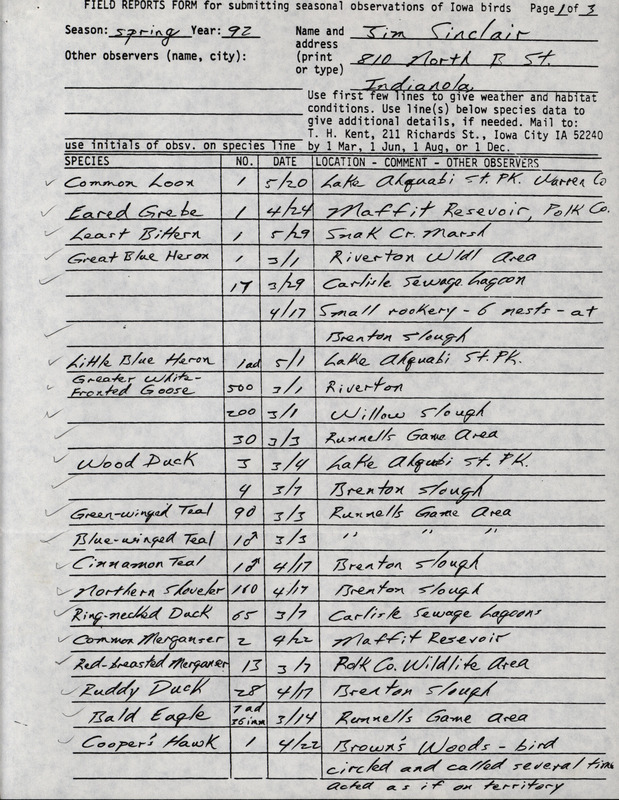 FIELD REPORTS FORM for submitting seasonal observations of Iowa birds Page 1 of 3
Season: spring Year: 92 Name and Jim Sinclair
address
Other observers (name, city): (print 810 North B St.
or type)
Indianola
Use first few lines to give weather and habitat
conditions. Use line(s) below species data to
give additional details, if needed. Mail to:
T. H. Kent, 211 Richards St., Iowa City IA 52240
use initials of obsv. on species line by 1 Mar, 1 Jun, 1 Aug, or 1 Dec.
SPECIES NO. DATE LOCATION - COMMENT - OTHER OBSERVERS
✓ Common Loon 1 5/20 Lake Ahquabi St. PK. Warren Co
✓ Eared Grebe 1 4/24 Maffit Resevoir, Polk Co.
✓ Least Bittern 1 5/29 Snak Cr. Marsh
✓ Great Blue Heron 1 3/1 Riverton Wldl Area
✓ 17 3/29 Carlisle Sewage Lagoon
4/17 Small rookery - 6 nests - at
✓ Brenton Slough
✓ Little Blue Heron 1ad 5/1 Lake Ahquabi St. PK.
Greater White-
✓ Fronted Goose 500 3/1 Riverton
✓ 200 3/1 Willow Slough
✓ 30 3/3 Runnells Game Area
✓ Wood Duck 3 3/4 Lake Ahquabi St. PK.
✓ 4 3/7 Brenton Slough
✓ Green-winged Teal 90 3/3 Runnells Game Area
✓ Blue-winged Teal 1♂ 3/3 " " "
✓ Cinnamon Teal 1♂ 4/17 Brenton Slough
✓ Northern Shoveler 160 4/17 Brenton Slough
✓ Ring-necked Duck 65 3/7 Carlisle Sewage Lagoons
✓ Common Merganser 2 4/22 Maffit Resevoir
✓ Red-breasted Merganser 13 3/7 Polk Co. Wildlife Area
✓ Ruddy Duck 28 4/17 Brenton Slough
7 ad
✓ Bald Eagle 36 imm 3/14 Runnells Game Area
✓ Cooper's Hawk 1 4/22 Brown's Woods - bird
circled and called several time
acted as if on territory